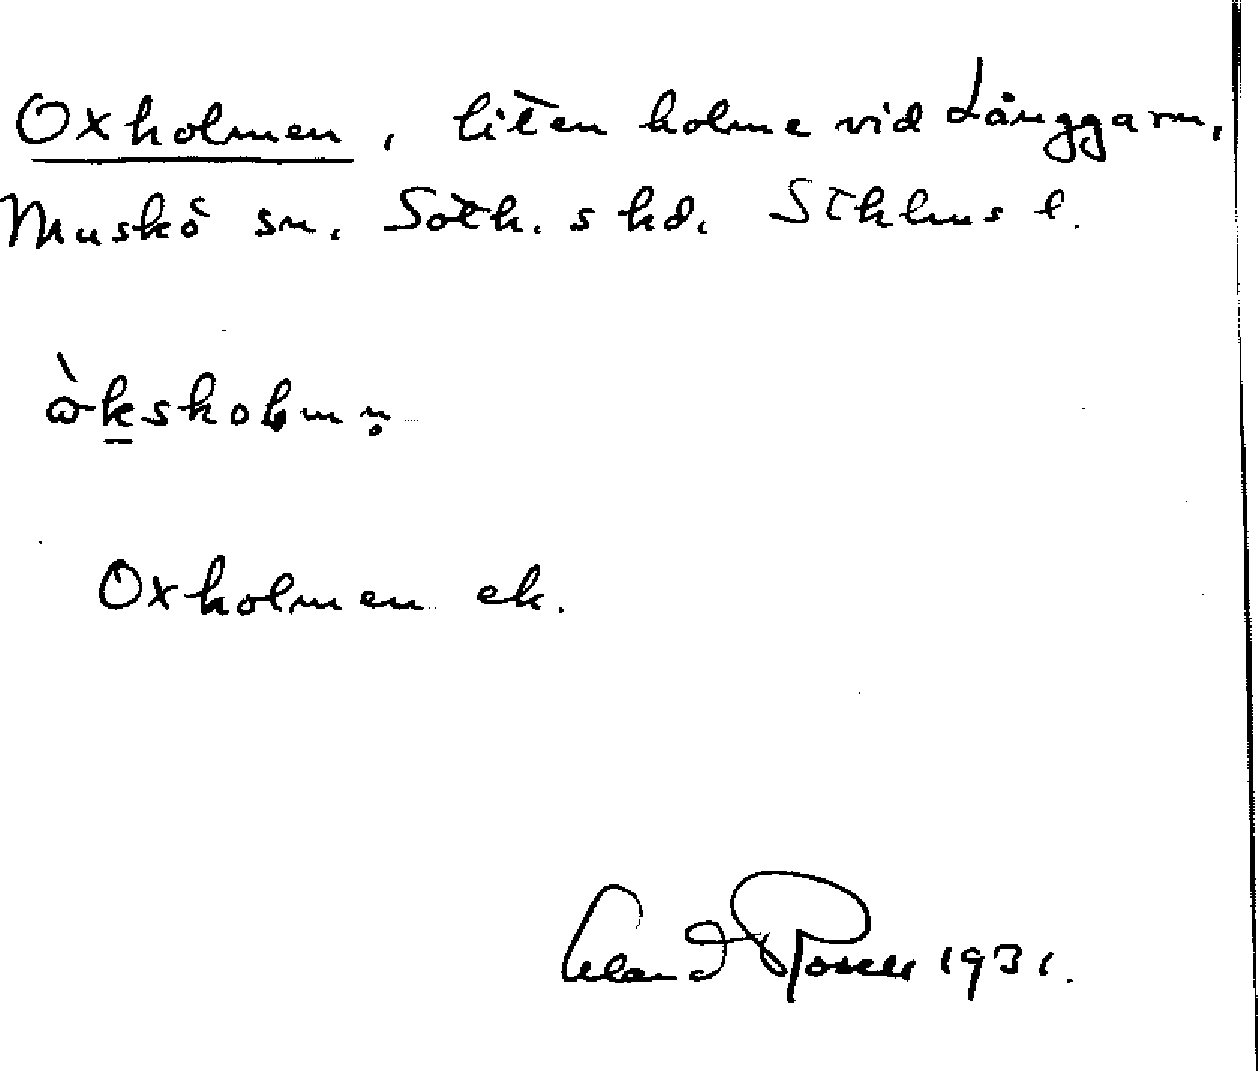 Oxholmen, liten holme vid Långgarn,
Muskö sn. Soth. s hd. Sthlms l.
òksholmn̥
Oxholmen ek.
Erland Rosell 1931.